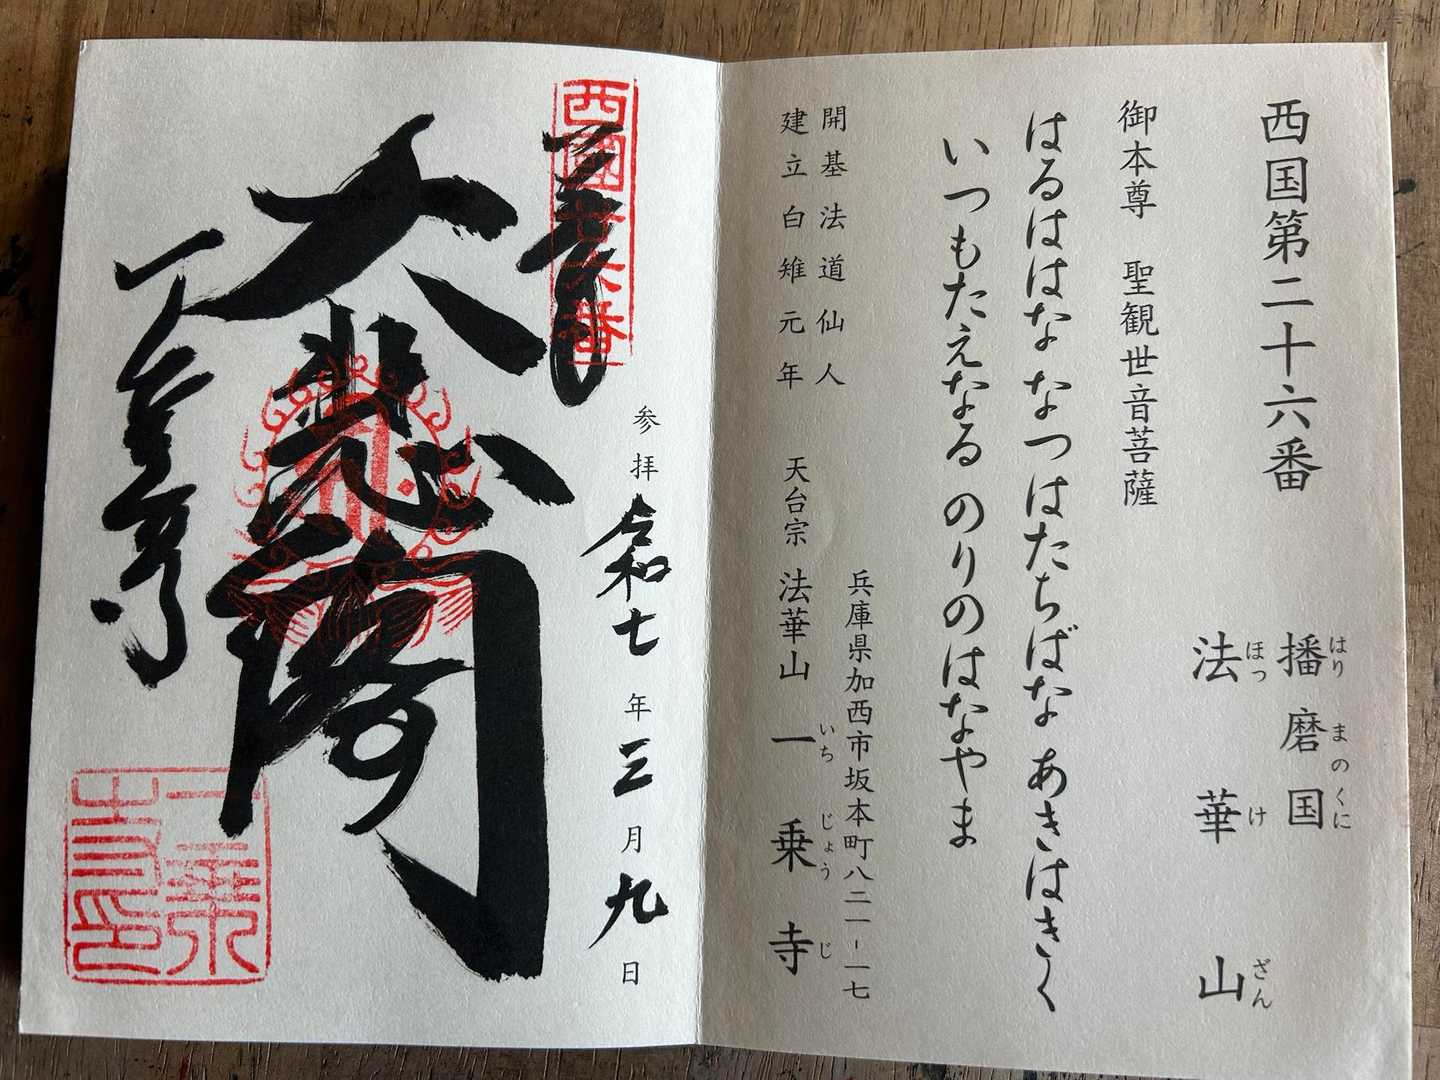 西国第二十六番
播磨国
はり まのくに
法華山
ほっ け ざん
御本尊 聖観世音菩薩
はるははな なつはたちばな あきはきく
いつもたえなる のりのはなやま
開基法道仙人
建立白雉元年
兵庫県加西市坂本町八二一-一七
天台宗 法華山 一乗寺
いち じょう じ
西國廿六番
奉拝
参拝 令和七年三月九日
大悲閣
一乗寺
一乗寺印